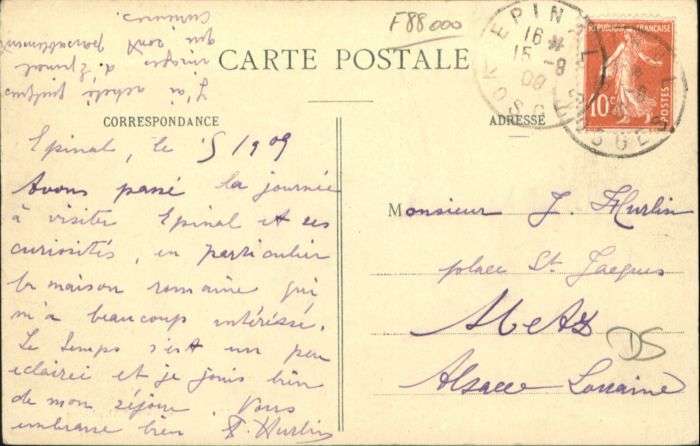 F88000
CARTE POSTALE
CORRESPONDANCE
ADRESSE
EPINAL
16
15 -9
09
VOSGES
REPUBLIQUE FRANCAISE
10c
POSTES
Epinal, le 5/9 09
Avons passé la journée
à visiter Epinal et ses
curiosités, en particulier
la maison romaine qui
m'a beaucoup intéréssé.
Le temps s'est un peu
eclairci et je jouis bien
de mon séjour. Vous
embrasse bien J. Hurlin
J'ai acheté quelques
images d'Epinal
qui sont passablement
curieuses.
Monsieur J. Hurlin
place St. Jacques
Metz
Alsace Lorraine
DS